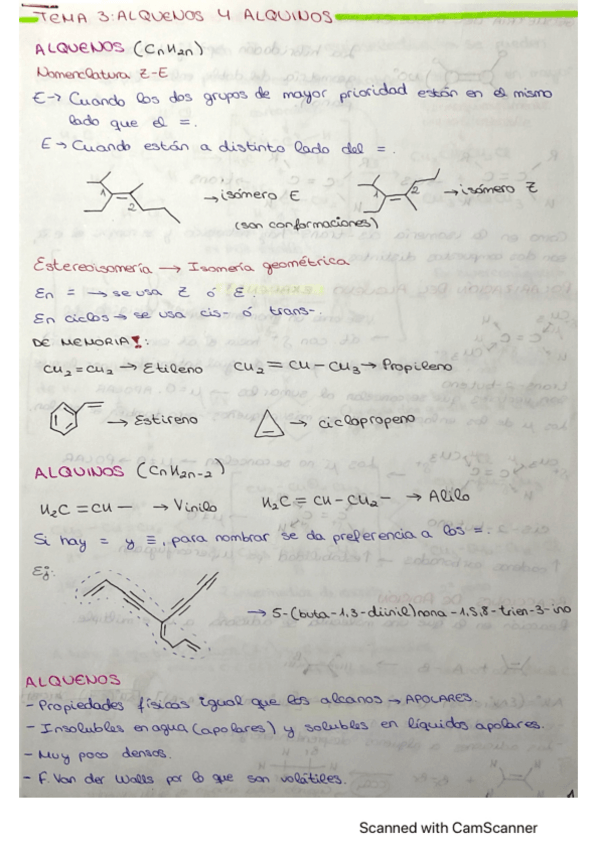 TEMA 3: ALQUENOS Y ALQUINOS
ALQUENOS (CnH2n)
Nomenclatura Z-E
E→ Cuando los dos grupos de mayor prioridad están en el mismo
lado que el =.
E → Cuando están a distinto lado del =.
1 2 → isómero E
1 2 → isómero Z
(son conformaciones)
Estereoisomería → Isomería geométrica
En = → se usa Z ó E.
En ciclos → se usa cis- ó trans-.
DE MEMORIA!:
CH2 = CH2 → Etileno CH2 = CH - CH3 → Propileno
→ Estireno → ciclopropeno
ALQUINOS (CnH2n-2)
H2C = CH — → Vinilo H2C = CH - CH2 - → Alilo
Si hay = y ≡, para nombrar se da preferencia a los =.
Ej:
→ 5-(buta-1,3-diinil)nona-1,5,8-trien-3-ino
ALQUENOS
- Propiedades físicas igual que los alcanos → APOLARES.
- Insolubles en agua (apolares) y solubles en líquidos apolares.
- Muy poco densos.
- F. Van der Walls por lo que son volátiles.
1
Scanned with CamScanner